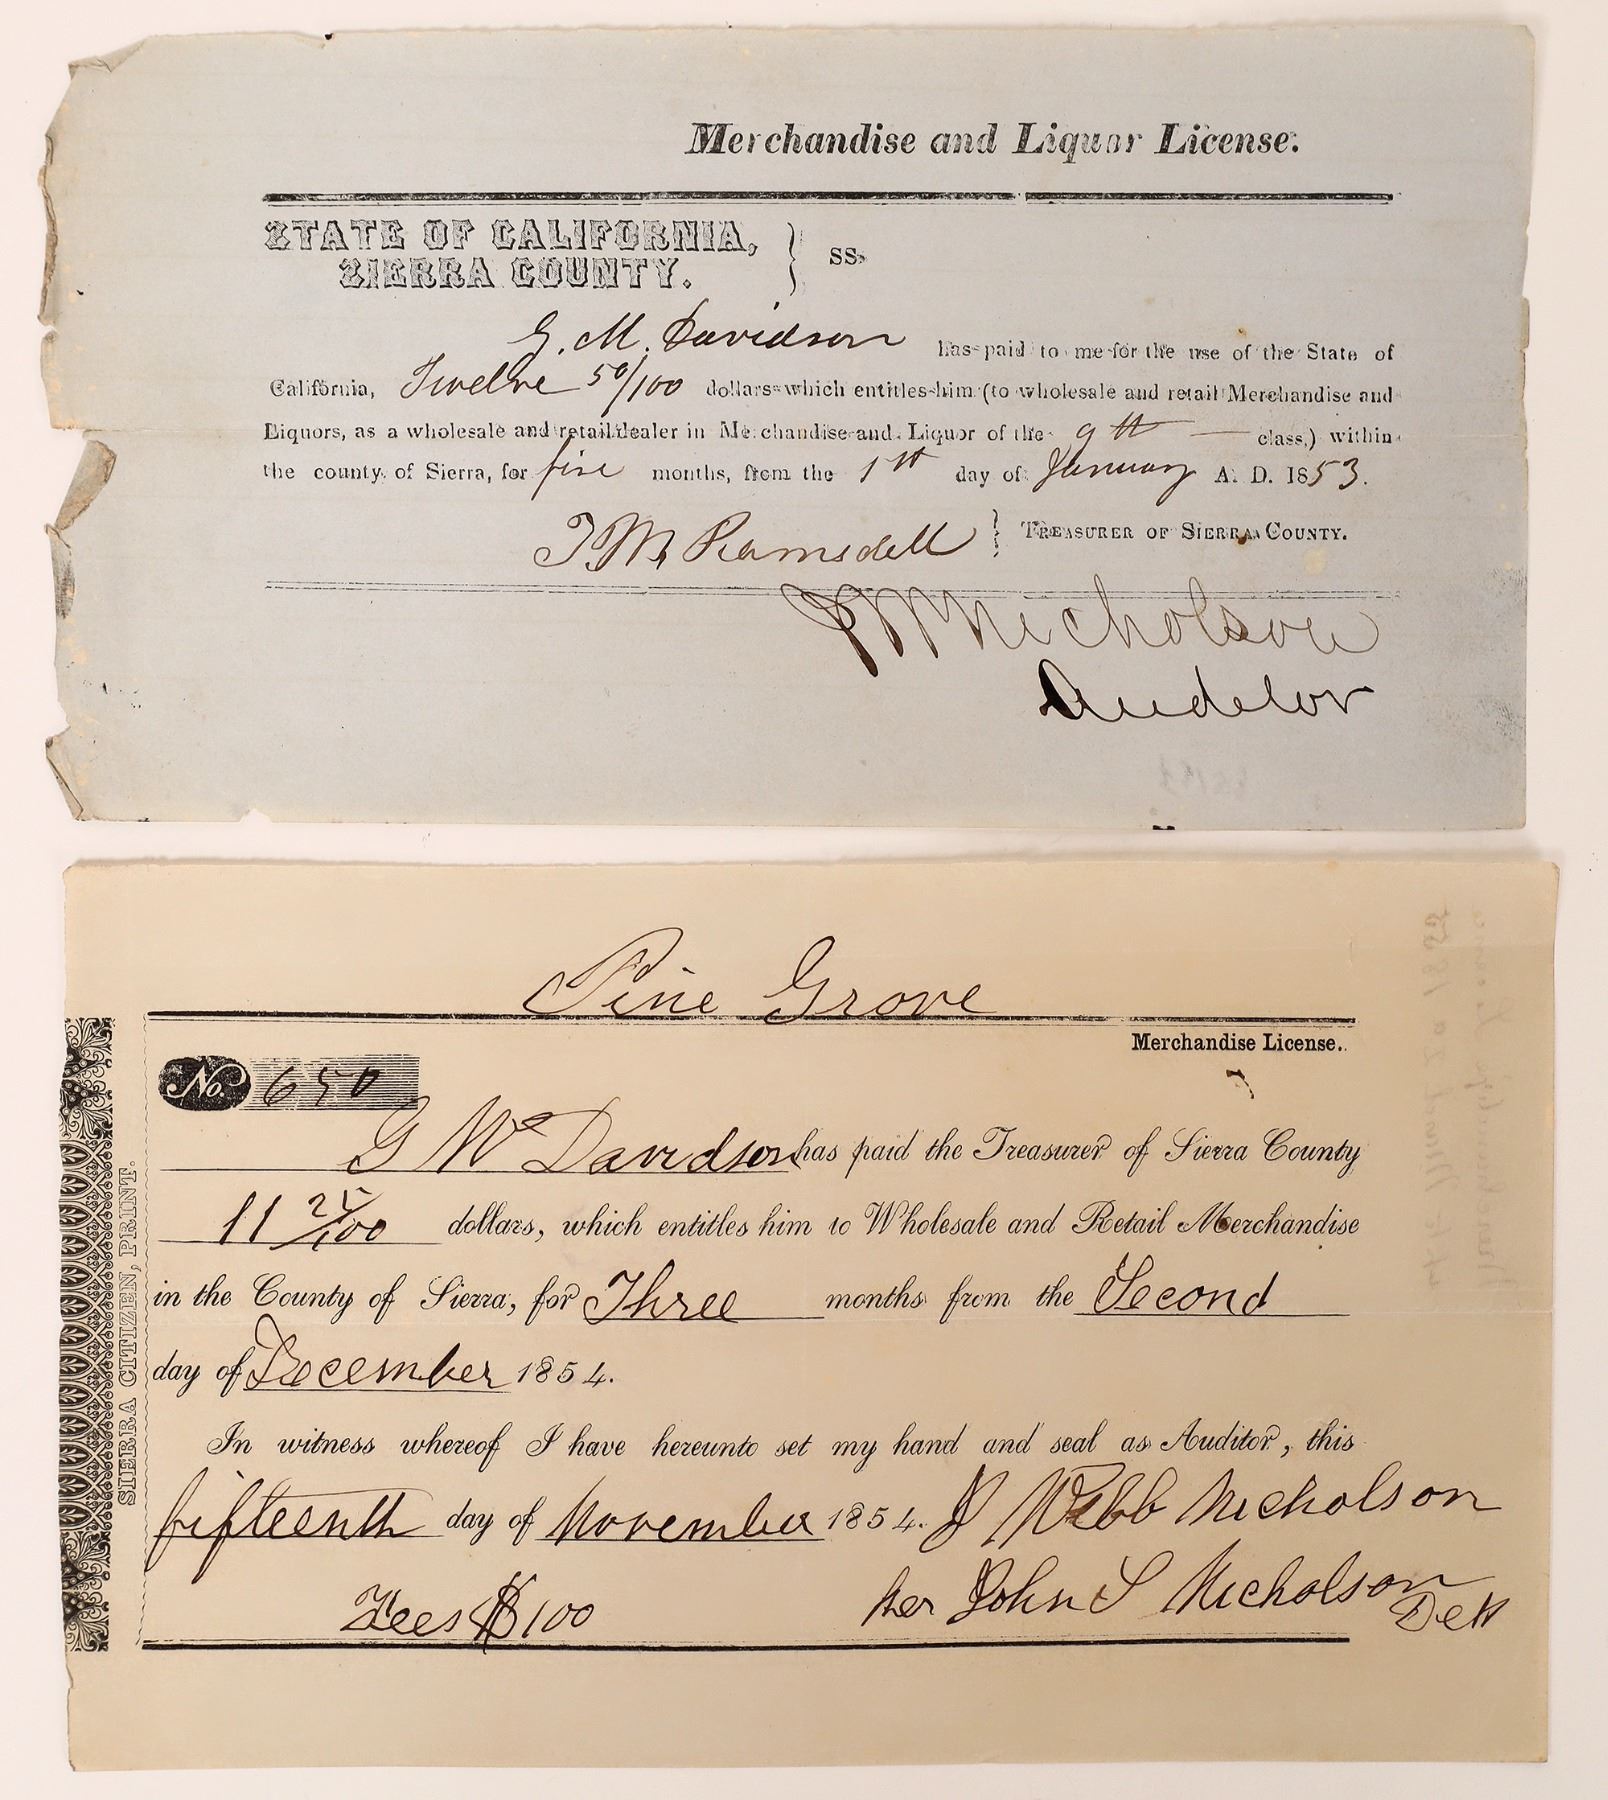 Merchandise and Liquor License.
STATE OF CALIFORNIA,
SIERRA COUNTY. } SS.
G. M. Davidson has paid to me for the use of the State of
California, Twelve 50/100 dollars which entitles him (to wholesale and retail Merchandise and
Liquors, as a wholesale and retail dealer in Merchandise and Liquor of the 9th — class,) within
the county of Sierra, for five months, from the 1st day of January A. D. 1853.
T. M. Ramsdell } TREASURER OF SIERRA COUNTY.
J W Nicholson
Audetor
Pine Grove
Merchandise License.
No. 650
G Mc Davidson has paid the Treasurer of Sierra County
11 25/100 dollars, which entitles him to Wholesale and Retail Merchandise
in the County of Sierra, for Three months from the Second
day of December 1854.
In witness whereof I have hereunto set my hand and seal as Auditor, this
fifteenth day of November 1854. J Webb Nicholson
Fees $100 per John S Nicholson
Dett
SIERRA CITIZEN, PRINT.